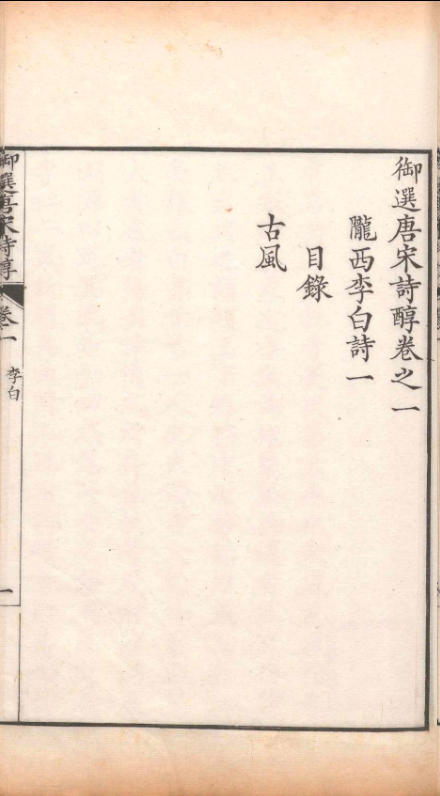 御選唐宋詩醇卷之一
隴西李白詩一
目錄
古風
御選唐宋詩醇
卷一
李白
一